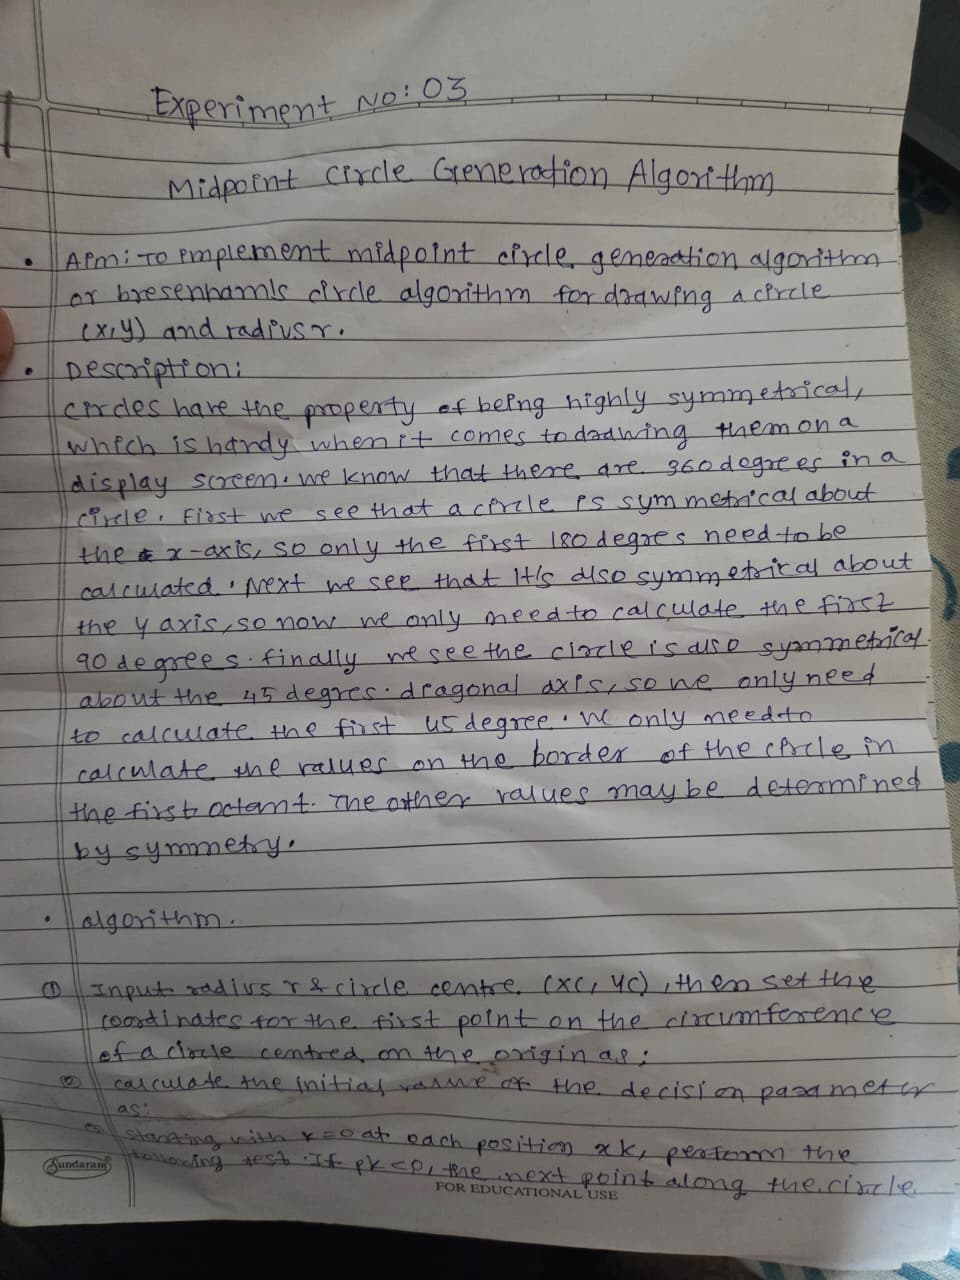 Experiment No: 03
Midpoint Circle Generation Algorithm
• Aim: To implement midpoint circle generation algorithm
or bresenham's circle algorithm for drawing a circle
(x,y) and radius r.
• Description:
circles have the property of being highly symmetrical,
which is handy when it comes to drawing them on a
display screen. we know that there are 360 degrees in a
circle. First we see that a circle is symmetrical about
the x-axis, so only the first 180 degres need to be
calculated. Next we see that it's also symmetrical about
the y axis, so now we only need to calculate the first
90 degrees. finally we see the circle is also symmetrical
about the 45 degres. diagonal axis, so we only need
to calculate the first 45 degree. we only need to
calculate the values on the border of the circle in
the first octant. The other values may be determined
by symmetry.
• algorithm.
① Input radius r & circle centre (xc, yc), then set the
coordinates for the first point on the circumference
of a circle centred on the origin as:
② calculate the initial value of the decision parameter
as:
③ starting with k=0 at each position xk, perform the
following test. If pk<0, the next point along the circle
Sundaram
FOR EDUCATIONAL USE